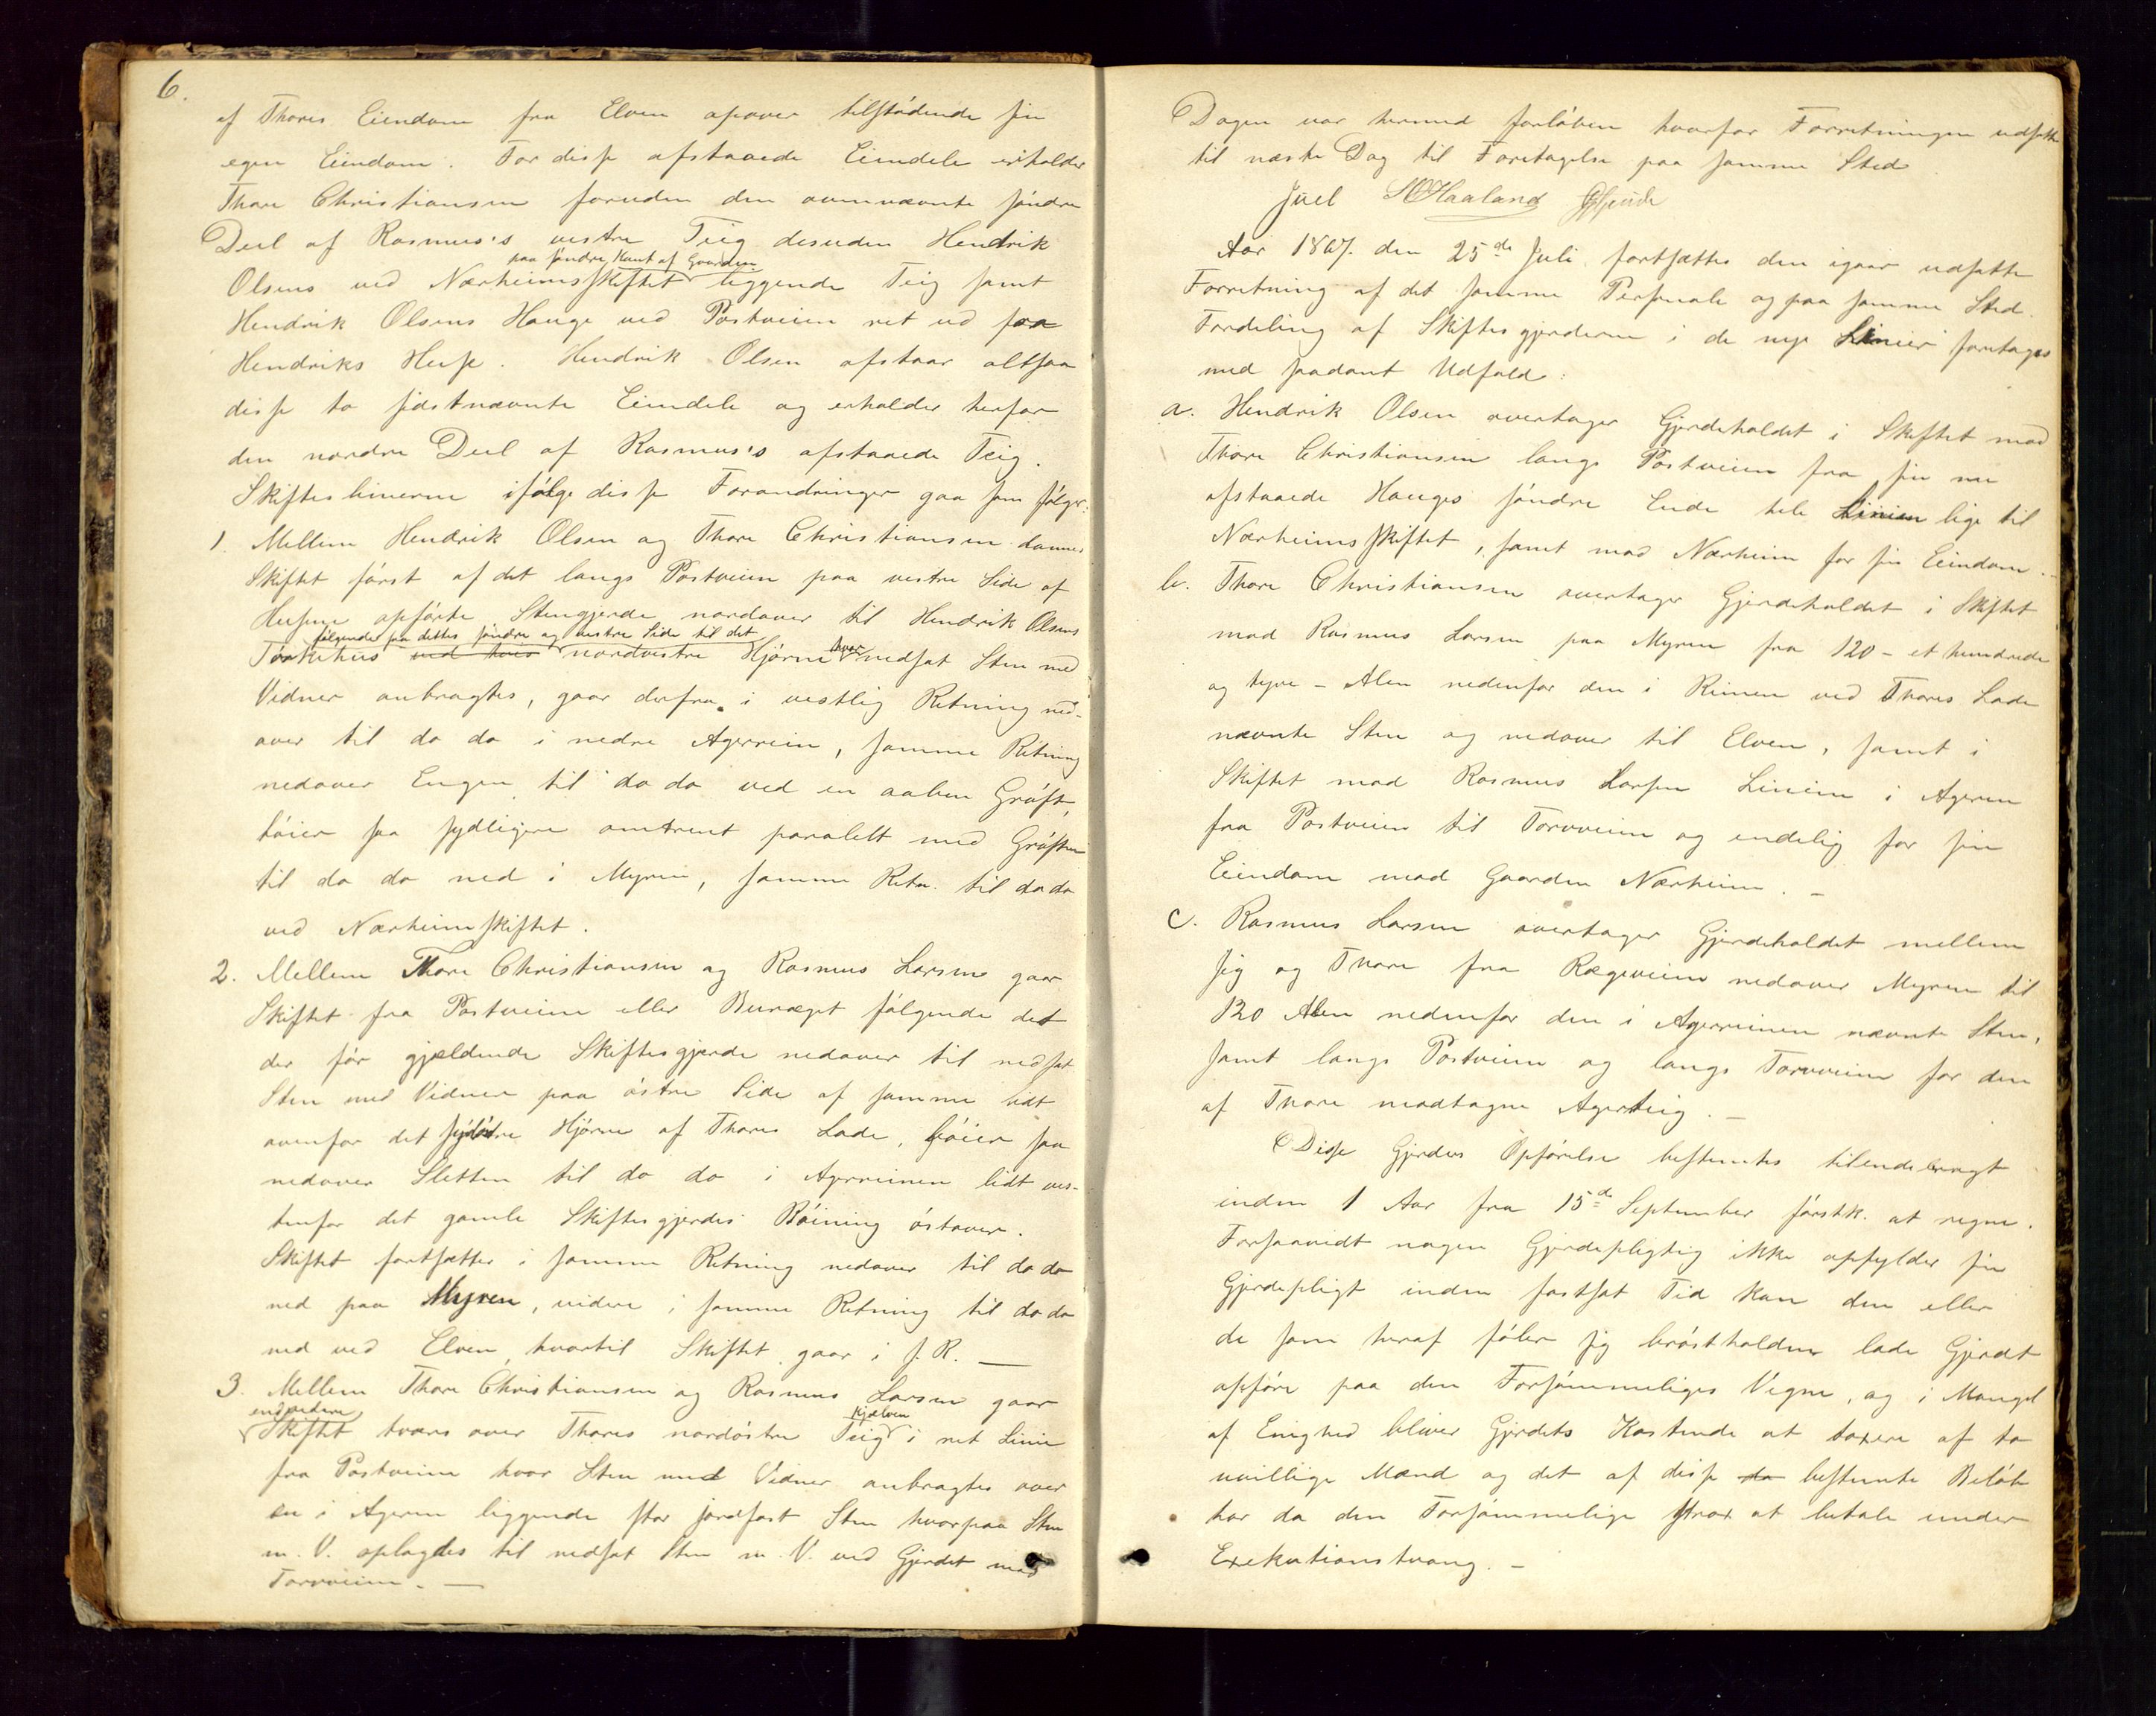 6.
af Thores Eiendom fra Elven opover tilstødende sin
egen Eiendom. For disse afstaaede Eiendele erholder
Thore Christiansen foruden den ovennævnte søndre
Deel af Rasmus's vestre Teig desuden Hendrik
paa søndre Kant af Gaarden
Olsens ved Nærheimsskiftet liggende Teig samt
Hendrik Olsens Hauge ved Postveien ret ud for
Hendriks Huse. Hendrik Olsen afstaar altsaa
disse to sidstnævnte Eiendele og erholder herfor
den nordre Deel af Rasmus's afstaaede Teig.
Skifteslinierne ifølge disse Forandringer gaa som følger:
1. Mellem Hendrik Olsen og Thore Christiansen dannes
Skiftet først af det langs Postveien paa vestre Side af
Husene opførte Stengjerde nordover til Hendrik Olsens
følgende paa dettes søndre og vestre Side til det
Tørkehus ved hvis nordvestre Hjørne hvor nedsat Sten med
Vidner anbragtes, gaar derfra i vestlig Retning ned-
over til do do i nedre Agerrein, samme Retning
nedover Engen til do do ved en aaben Grøft,
bøier saa sydligere omtrent paralelt med Grøften
til do do ned i Myren, samme Retn. til do do
ved Nærheimskiftet.
2. Mellem Thore Christiansen og Rasmus Larsen gaar
Skiftet fra Postveien eller Buræget følgende det
der før gjældende Skiftesgjerde nedover til nedsat
Sten med Vidner paa østre Side af samme lidt
ovenfor det sydøstre Hjørne af Thores Lade, bøier saa
nedover Sletten til do do i Agerreinen lidt ves-
tenfor det gamle Skiftesgjerdes Bøining østover.
Skiftet fortsætter i samme Retning nedover til do do
ned paa Myren, videre i samme Retning til do do
ned ved Elven, hvortil Skiftet gaar i s. R. —
3. Mellem Thore Christiansen og Rasmus Larsen gaar
endvidere kjælven
Skiftet tværs over Thores nordøstre Teig i ret Linie
fra Postveien hvor Sten med Vidner anbragtes over
en i Ageren liggende stor jordfast Sten hvorpaa Sten
m. V. oplagdes til nedsat Sten m. V. ved Gjerdet mod
Torvveien. —
Dagen var hermed forløben hvorfor Forretningen udsatte
til næste Dag til Foretagelse paa samme Sted
Juel SOHaaland
Aar 1867. den 25de Juli fortsattes den igaar udsatte
Forretning af det samme Personale og paa samme Sted.
Fordeling af Skiftesgjerderne i de nye Linier foretages
med saadant Udfald:
a. Hendrik Olsen overtager Gjerdeholdet i Skiftet mod
Thore Christiansen langs Postveien fra sin nu
afstaaede Hauges søndre Ende hele Linien lige til
Nærheimsskiftet, samt mod Nærheim for sin Eiendom. -
b. Thore Christiansen overtager Gjerdeholdet i Skiftet
mod Rasmus Larsen paa Myren fra 120 - et hundrede
og tyve - Alen nedenfor den i Reinen ved Thores Lade
nævnte Sten og nedover til Elven, samt i
Skiftet mod Rasmus Larsen Linien i Ageren
fra Postveien til Torvveien og endelig for sin
Eiendom mod Gaarden Nærheim. —
c. Rasmus Larsen overtager Gjerdeholdet mellem
sig og Thore fra Rægeveien nedover Myren til
120 Alen nedenfor den i Agerreinen nævnte Sten,
samt langs Postveien og langs Torvveien for den
af Thore modtagne Agerteig. —
Disse Gjerders Opførelse bestemtes tilendebragt
inden 1 Aar fra 15de September førstk. at regne.
Forsaavidt nogen Gjerdepligtig ikke opfylder sin
Gjerdepligt inden fastsat Tid kan den eller
de som heraf føler sig brøstholden lade Gjerdet
opføre paa den Forsømmeliges Vegne, og i Mangel
af Enighed bliver Gjerdets Kostende at taxere af to
uvillige Mænd og det af disse da bestemte Beløb
har da den Forsømmelige strax at betale under
Exekutionstvang. —